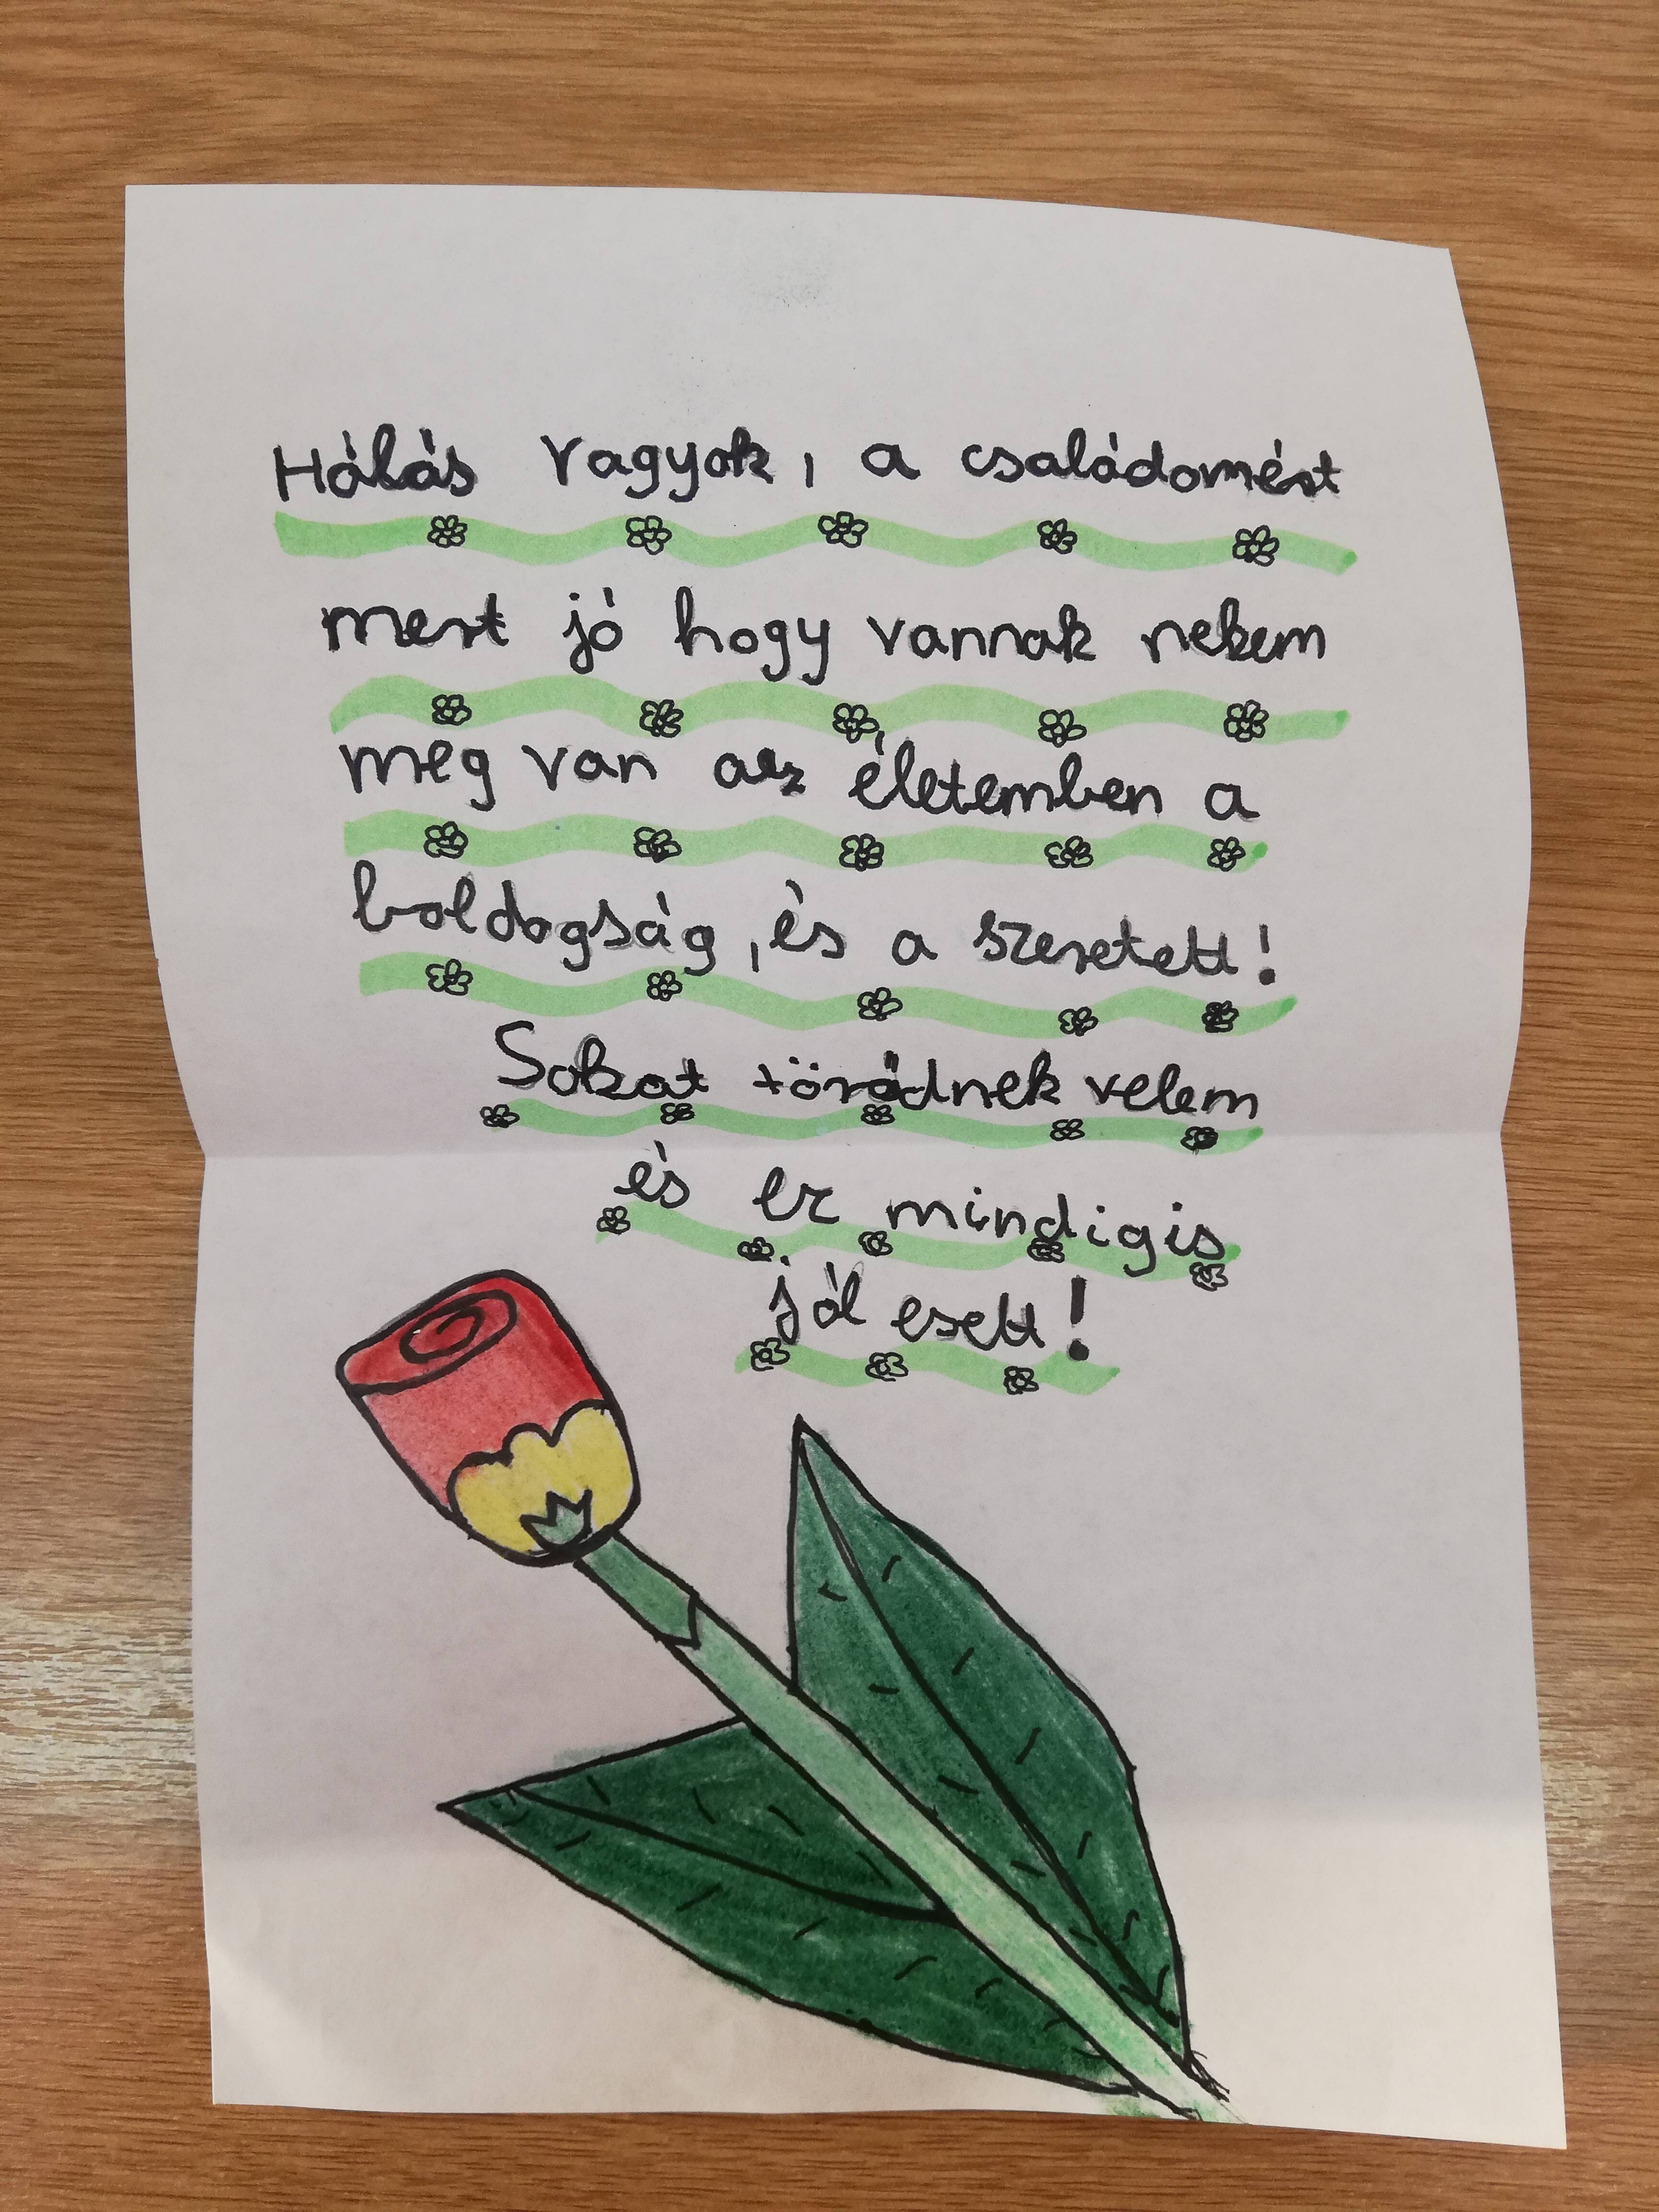 Hálás vagyok, a családomért
mert jó hogy vannak nekem
meg van az életemben a
boldogság, és a szeretett!
Sokat törődnek velem
és ez mindigis
jól esett!